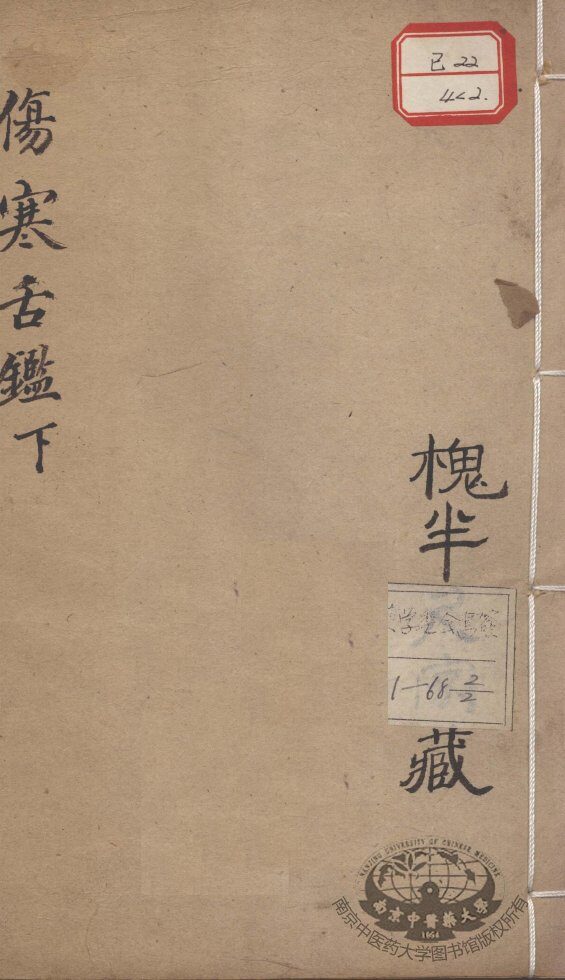 已22
4<2.
槐半
1-68 2/2
藏
傷寒舌鑑下
NANJING UNIVERSITY OF CHINESE MEDICINE
南京中醫藥大學
1954
南京中医药大学图书馆版权所有